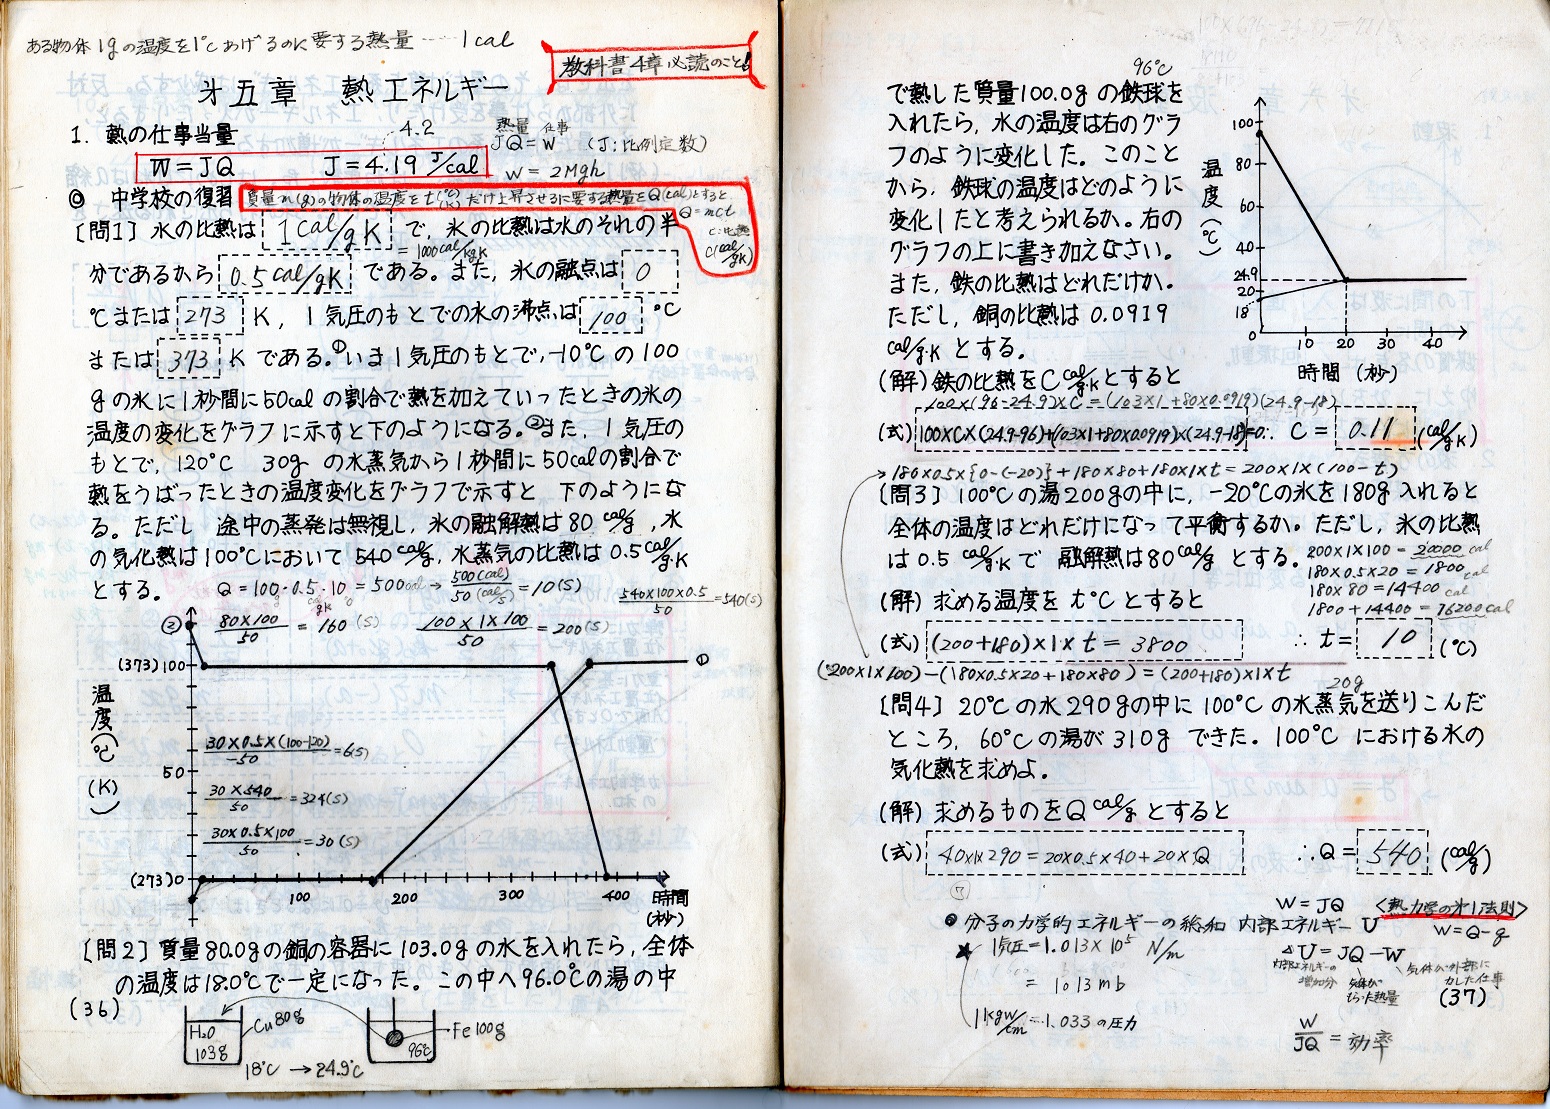 ある物体1gの温度を1℃あげるのに要する熱量……1cal
教科書4章必読のこと!
才五章 熱エネルギー
1. 熱の仕事当量
4.2
熱量 仕事
JQ = W (J:比例定数)
W=JQ J=4.19 J/cal
W = 2Mgh
◎ 中学校の復習
質量m(g)の物体の温度をt(℃)だけ上昇させるに要する熱量をQ(cal)とすると,
Q=mct
C:比熱
C(cal/gK)
[問1] 水の比熱は 1cal/gK で, 氷の比熱は水のそれの半
= 1000cal/kgK
分であるから 0.5cal/gK である。また, 氷の融点は 0
℃または 273 K, 1気圧のもとでの水の沸点は 100 ℃
または 373 K である。①いま1気圧のもとで, -10℃の100
gの氷に1秒間に50calの割合で熱を加えていったときの氷の
温度の変化をグラフに示すと下のようになる。②また, 1気圧の
もとで, 120℃ 30gの水蒸気から1秒間に50calの割合で
熱をうばったときの温度変化をグラフで示すと 下のようにな
る。ただし 途中の蒸発は無視し, 氷の融解熱は80 cal/g, 水
の気化熱は100℃において540cal/g, 水蒸気の比熱は0.5cal/g・K
とする。
Q=100・0.5・10=500cal → 500(cal)/50(cal/s) = 10(s)
540×100×0.5/50=540(s)
80×100/50 = 160(s) 100×1×100/50 = 200(s)
②
(373)100
①
温度(℃)(K)
30×0.5×(100-120)/-50=6(s)
50
30×540/50=324(s)
30×0.5×100/50=30(s)
(273)0 100 200 300 400 時間(秒)
[問2] 質量80.0gの銅の容器に103.0gの水を入れたら, 全体
の温度は18.0℃で一定になった。この中へ96.0℃の湯の中
(36)
H₂O
103g
Cu80g
Fe100g
96℃
18℃ → 24.9℃
96℃
で熱した質量100.0gの鉄球を
入れたら, 水の温度は右のグラ
フのように変化した。このこと
から, 鉄球の温度はどのように
変化したと考えられるか。右の
グラフの上に書き加えなさい。
また, 鉄の比熱はどれだけか。
ただし, 銅の比熱は0.0919
cal/g・Kとする。
温度(℃)
100
80
60
40
24.9
20
18
0
10 20 30 40
時間(秒)
(解) 鉄の比熱をC cal/g・Kとすると
100×(96-24.9)×C=(103×1+80×0.0919)(24.9-18)
(式) 100×C×(24.9-96)+(103×1+80×0.0919)×(24.9-18)=0 ∴ C = 0.11 (cal/gK)
180×0.5×{0-(-20)}+180×80+180×1×t=200×1×(100-t)
[問3] 100℃の湯200gの中に, -20℃の氷を180g入れると
全体の温度はどれだけになって平衡するか。ただし, 氷の比熱
は0.5 cal/g・Kで 融解熱は80cal/gとする。
200×1×100=20000cal
180×0.5×20=1800cal
180×80=14400cal
1800+14400=16200cal
(解) 求める温度を t℃とすると
(式) (200+180)×1×t=3800 ∴ t= 10 (℃)
(200×1×100)-(180×0.5×20+180×80)=(200+180)×1×t
20g
[問4] 20℃の水290gの中に100℃の水蒸気を送りこんだ
ところ, 60℃の湯が310gできた。100℃における水の
気化熱を求めよ。
(解) 求めるものをQ cal/gとすると
(式) 40×1×290=20×0.5×40+20×Q ∴Q= 540 (cal/g)
W=JQ
<熱力学の才1法則>
● 分子の力学的エネルギーの総和 内部エネルギー U
W=Q-q
★ 1気圧=1.013×10⁵ N/m
ΔU=JQ-W
= 1013mb
内部エネルギーの増加分
気体がもらった熱量
気体が外部にした仕事
1kgw/cm=1.033の圧力
(37)
W/JQ = 効率